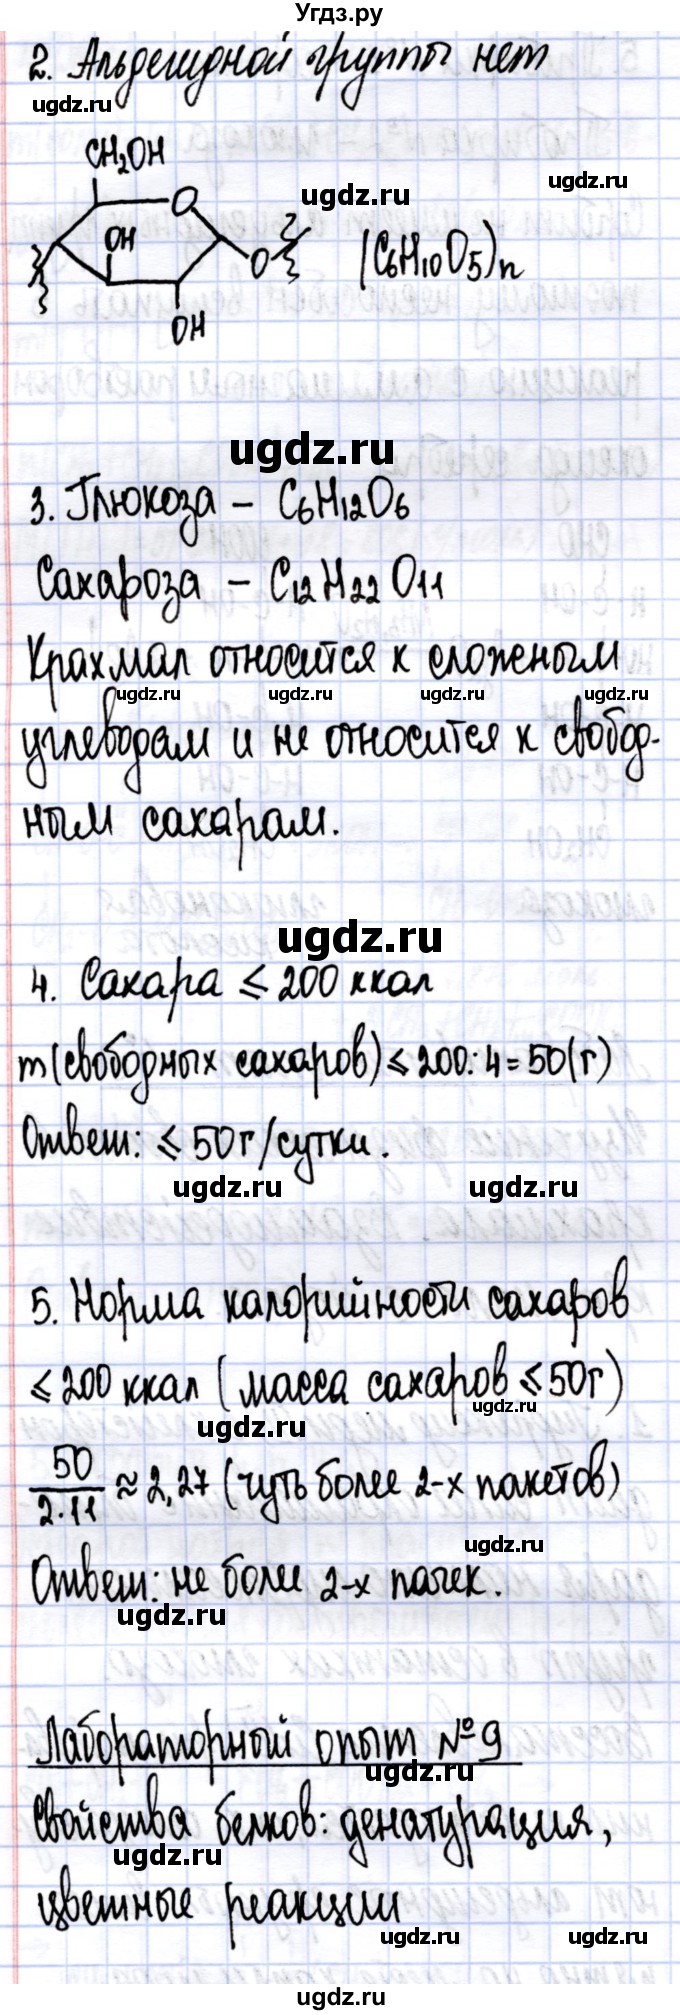 Угдз.ру
2. Альдегидной группы нет
ugdz.ru
CH2OH
ugdz.ru
ugdz.ru
O
OH
O
(C6H10O5)n
OH
ugdz.ru
3. Глюкоза – C6H12O6
Сахароза – C12H22O11
Крахмал относится к сложеным
ugdz.ru ugdz.ru ugdz.ru ugdz.ru
углеводам и не относится к свобод-
ным сахарам.
ugdz.ru
4. Сахара ⩽ 200 ккал
m(свободных сахаров) ⩽ 200:4=50(г)
Ответ: ⩽ 50г/сутки.
ugdz.ru ugdz.ru
5. Норма калорийности сахаров
⩽ 200 ккал (масса сахаров ⩽ 50г)
ugdz.ru ugdz.ru
50/2·11 ≈ 2,27 (чуть более 2-х пакетов)
ugdz.ru
Ответ: не более 2-х пачек.
ugdz.ru
Лабораторный опыт №9
ugdz.ru
Свойства белков: денатурация,
ugdz.ru
цветные реакции
ugdz.ru ugdz.ru
ugdz.ru